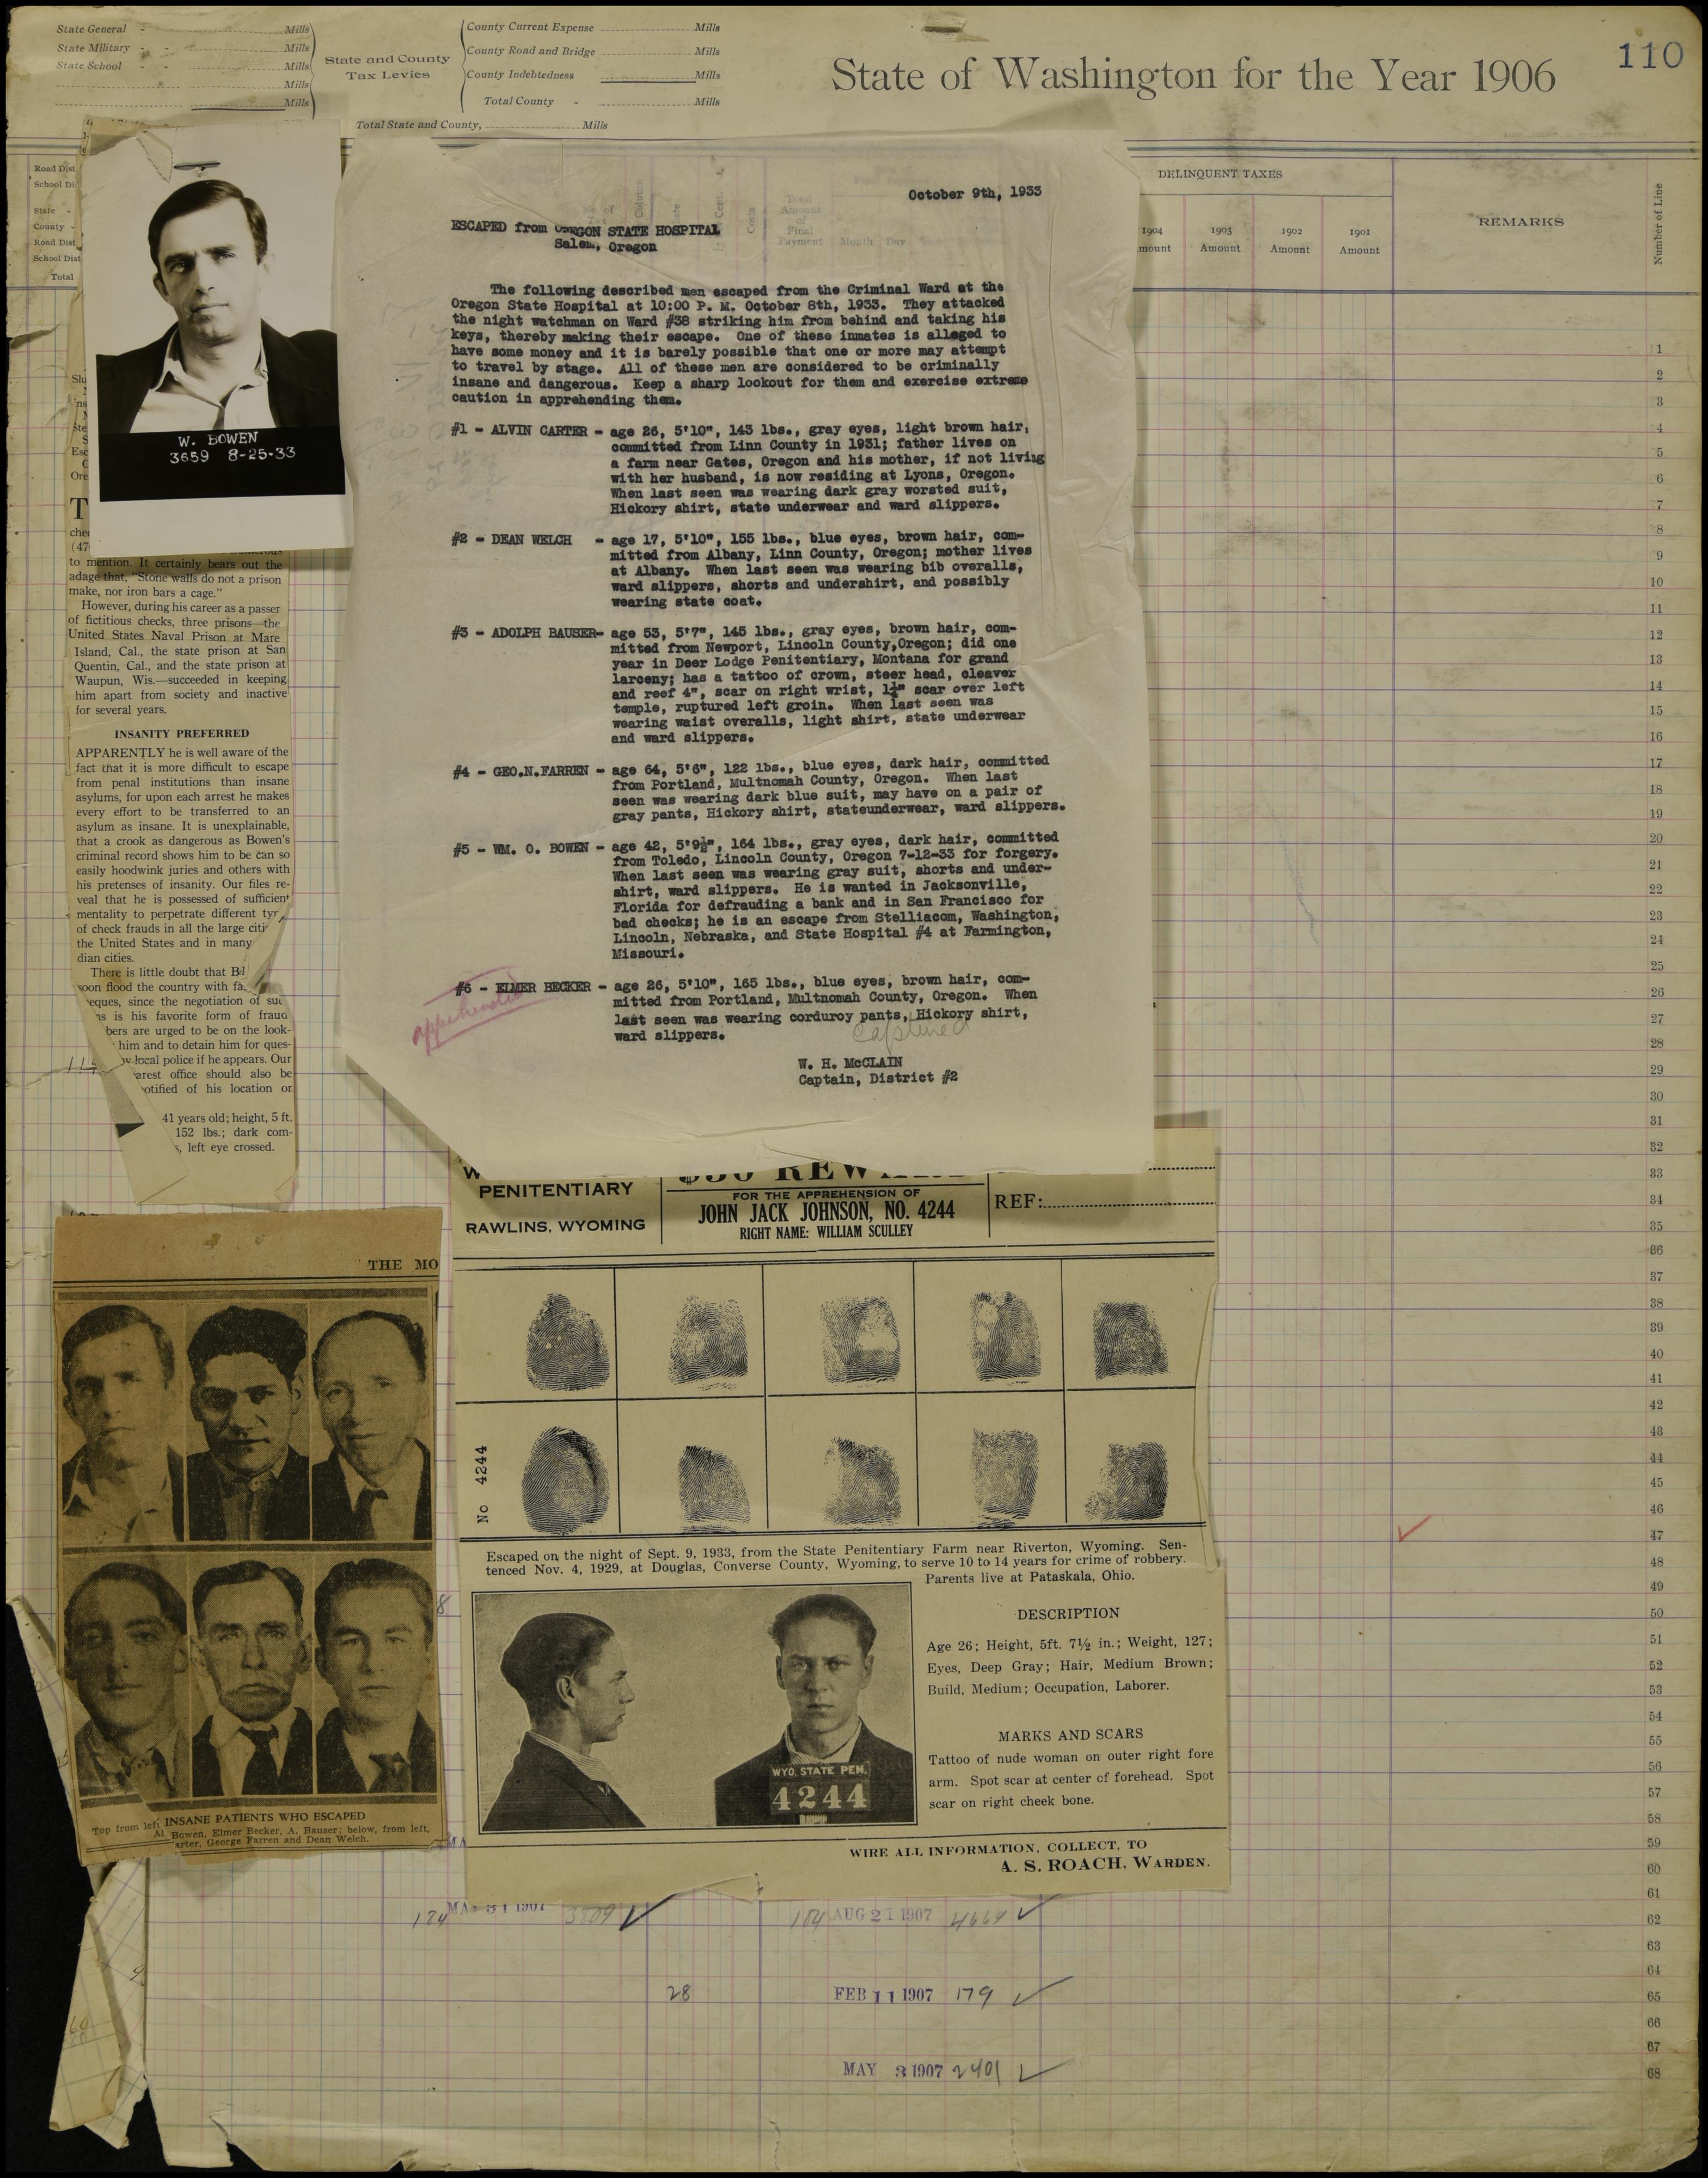 110
State General - Mills
State Military - - Mills
State School - - Mills
Mills
Mills
State and County
Tax Levies
County Current Expense Mills
County Road and Bridge Mills
County Indebtedness Mills
Total County - Mills
Total State and County, Mills
State of Washington for the Year 1906
Road Dist
School Di
State -
County -
Road Dist
School Dist
Total
DELINQUENT TAXES
1904
mount
1903
Amount
1902
Amount
1901
Amount
REMARKS
Number of Line
W. BOWEN
3659 8-25-33
T
to mention. It certainly bears out the
adage that, "Stone walls do not a prison
make, nor iron bars a cage."
However, during his career as a passer
of fictitious checks, three prisons—the
United States Naval Prison at Mare
Island, Cal., the state prison at San
Quentin, Cal., and the state prison at
Waupun, Wis.—succeeded in keeping
him apart from society and inactive
for several years.
INSANITY PREFERRED
APPARENTLY he is well aware of the
fact that it is more difficult to escape
from penal institutions than insane
asylums, for upon each arrest he makes
every effort to be transferred to an
asylum as insane. It is unexplainable,
that a crook as dangerous as Bowen's
criminal record shows him to be can so
easily hoodwink juries and others with
his pretenses of insanity. Our files re-
veal that he is possessed of sufficient
mentality to perpetrate different
of check frauds in all the large
the United States and in many
dian cities.
There is little doubt that
soon flood the country with
eques, since the negotiation of
is his favorite form of fraud
bers are urged to be on the look-
him and to detain him for ques-
by local police if he appears. Our
arest office should also be
notified of his location or
41 years old; height, 5 ft.
152 lbs.; dark com-
s, left eye crossed.
October 9th, 1933
ESCAPED from OREGON STATE HOSPITAL
Salem, Oregon
The following described men escaped from the Criminal Ward at the
Oregon State Hospital at 10:00 P. M. October 8th, 1933. They attacked
the night watchman on Ward #38 striking him from behind and taking his
keys, thereby making their escape. One of these inmates is alleged to
have some money and it is barely possible that one or more may attempt
to travel by stage. All of these men are considered to be criminally
insane and dangerous. Keep a sharp lookout for them and exercise extreme
caution in apprehending them.
#1 - ALVIN CARTER - age 26, 5'10", 143 lbs., gray eyes, light brown hair,
committed from Linn County in 1931; father lives on
a farm near Gates, Oregon and his mother, if not living
with her husband, is now residing at Lyons, Oregon.
When last seen was wearing dark gray worsted suit,
Hickory shirt, state underwear and ward slippers.
#2 - DEAN WELCH - age 17, 5'10", 155 lbs., blue eyes, brown hair, com-
mitted from Albany, Linn County, Oregon; mother lives
at Albany. When last seen was wearing bib overalls,
ward slippers, shorts and undershirt, and possibly
wearing state coat.
#3 - ADOLPH BAUSER- age 53, 5'7", 145 lbs., gray eyes, brown hair, com-
mitted from Newport, Lincoln County,Oregon; did one
year in Deer Lodge Penitentiary, Montana for grand
larceny; has a tattoo of crown, steer head, cleaver
and reef 4", scar on right wrist, 1½" scar over left
temple, ruptured left groin. When last seen was
wearing waist overalls, light shirt, state underwear
and ward slippers.
#4 - GEO.N.FARREN - age 64, 5'6", 122 lbs., blue eyes, dark hair, committed
from Portland, Multnomah County, Oregon. When last
seen was wearing dark blue suit, may have on a pair of
gray pants, Hickory shirt, stateunderwear, ward slippers.
#5 - WM. O. BOWEN - age 42, 5'9½", 164 lbs., gray eyes, dark hair, committed
from Toledo, Lincoln County, Oregon 7-12-33 for forgery.
When last seen was wearing gray suit, shorts and under-
shirt, ward slippers. He is wanted in Jacksonville,
Florida for defrauding a bank and in San Francisco for
bad checks; he is an escape from Stelliacom, Washington,
Lincoln, Nebraska, and State Hospital #4 at Farmington,
Missouri.
#6 - ELMER BECKER - age 26, 5'10", 165 lbs., blue eyes, brown hair, com-
mitted from Portland, Multnomah County, Oregon. When
last seen was wearing corduroy pants, Hickory shirt,
ward slippers.
apprehended
captured
W. H. McCLAIN
Captain, District #2
PENITENTIARY
RAWLINS, WYOMING
$50 REWARD
FOR THE APPREHENSION OF
JOHN JACK JOHNSON, NO. 4244
RIGHT NAME: WILLIAM SCULLEY
REF:
No 4244
Escaped on the night of Sept. 9, 1933, from the State Penitentiary Farm near Riverton, Wyoming. Sen-
tenced Nov. 4, 1929, at Douglas, Converse County, Wyoming, to serve 10 to 14 years for crime of robbery.
Parents live at Pataskala, Ohio.
DESCRIPTION
Age 26; Height, 5ft. 7½ in.; Weight, 127;
Eyes, Deep Gray; Hair, Medium Brown;
Build, Medium; Occupation, Laborer.
MARKS AND SCARS
Tattoo of nude woman on outer right fore
arm. Spot scar at center of forehead. Spot
scar on right cheek bone.
WYO. STATE PEN.
4244
WIRE ALL INFORMATION, COLLECT, TO
A. S. ROACH, WARDEN.
THE MO
INSANE PATIENTS WHO ESCAPED
Top from left, Bowen, Elmer Becker, A. Bauser; below, from left,
Al arter, George Farren and Dean Welch.
184 MA 31 1907 3809
184 AUG 21 1907 4664
28 FEB 11 1907 179
MAY 3 1907 2401
1
2
3
4
5
6
7
8
9
10
11
12
13
14
15
16
17
18
19
20
21
22
23
24
25
26
27
28
29
30
31
32
33
34
35
36
37
38
39
40
41
42
43
44
45
46
47
48
49
50
51
52
53
54
55
56
57
58
59
60
61
62
63
64
65
66
67
68